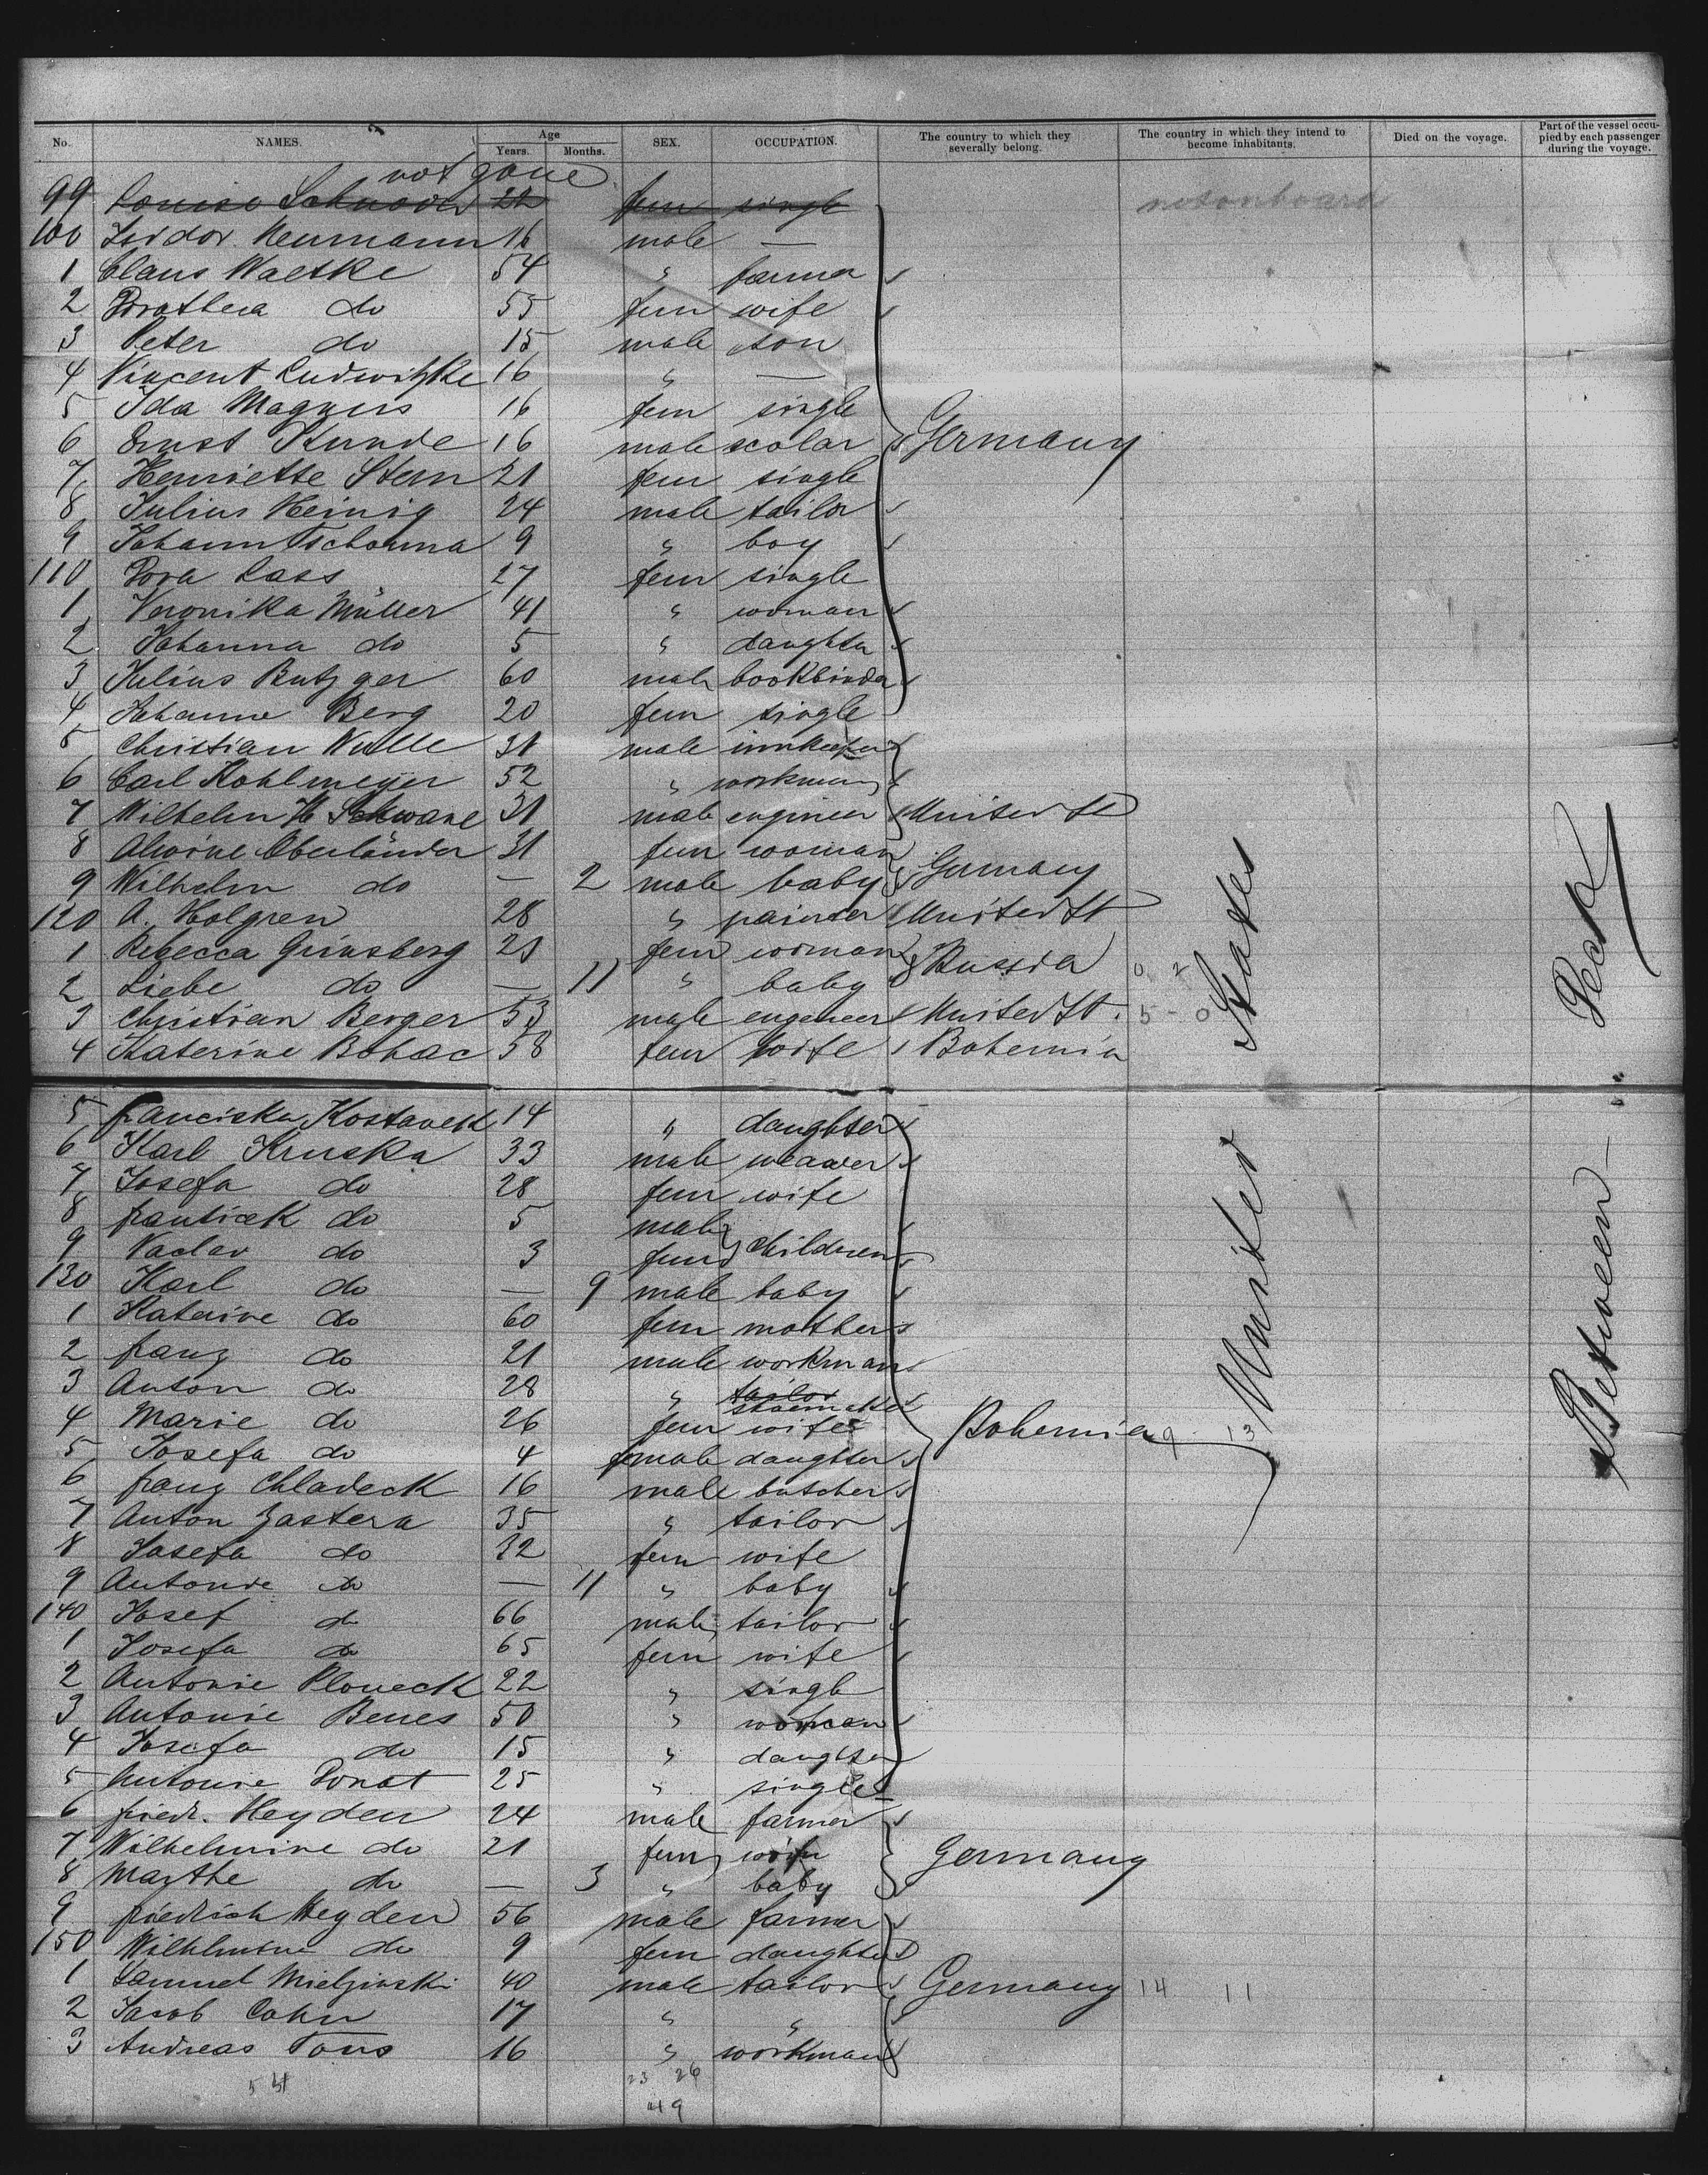 No. NAMES. Age Years. Months. SEX. OCCUPATION. The country to which they severally belong. The country in which they intend to become inhabitants. Died on the voyage. Part of the vessel occupied by each passenger during the voyage.
not gone
99 Louise Schnoor 22 fem single not on board
100 Isidor Neumann 16 male —
1 Claus Waetke 54 " farmer
2 Dorothea do 55 fem wife
3 Peter do 15 male son
4 Vincent Ludwitzke 16 " —
5 Ida Magnus 16 fem single
6 Ernst Kunde 16 male scolar Germany
7 Henriette Stern 21 fem single
8 Julius Heinig 24 male tailor
9 Johann Tschamma 9 " boy
110 Dora Lass 27 fem single
1 Veronika Müller 41 " woman
2 Johanna do 5 " daughter
3 Julius Butzger 60 male bookbinder
4 Johanne Berg 20 fem single
5 Christian Wulle 31 male innkeeper
6 Carl Kohlmeyer 52 " workman
7 Wilhelm H Schwane 31 male engineer United St
8 Alwine Oberländer 31 fem woman
9 Wilhelm do — 2 male baby Germany
120 A. Holgren 28 " painter United St
1 Rebecca Grinsberg 21 fem woman Russia
2 Liebe do — 11 " baby
3 Christian Berger 53 male engeneer United St. 5 - 0
4 Katerine Bohac 58 fem wife Bohemia
5 franciska Kostaneck 14 " daughter
6 Karl Kruska 33 male weawer
7 Josefa do 28 fem wife
8 frantisek do 5 male children
9 Vaclav do 3 fem
130 Karl do — 9 male baby
1 Katerine do 60 fem mother
2 franz do 21 male workman
3 Anton do 28 " tailor shoemaker
4 Marie do 26 fem wife Bohemia 9 13
5 Josefa do 4 female daughter
6 franz Chladeck 16 male butcher
7 Anton Zastera 35 " tailor
8 Josefa do 32 fem wife
9 Antonie do — 11 " baby
140 Josef do 66 male tailor
1 Josefa do 65 fem wife
2 Antonie Ploweck 22 " single
3 Antonie Benes 50 " woman
4 Josefa do 15 " daughter
5 Antonie Donat 25 " single
6 friedr. Heyden 24 male farmer
7 Wilhelmine do 21 fem wife Germany
8 Marthe do — 3 " baby
9 friedrich Heyden 56 male farmer
150 Wilhelmine do 9 fem daughter
1 Samuel Mielzinski 40 male tailor Germany 14 11
2 Jacob Cohn 17 " "
3 Andreas Tons 16 " workman
23 26
49
United States
Between Deck